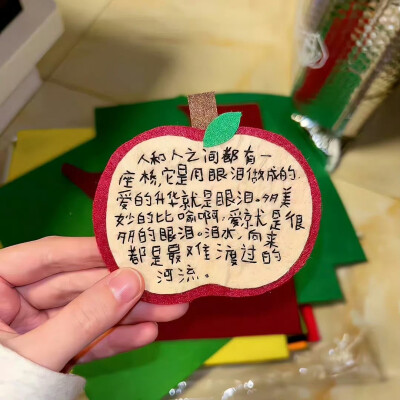 人和人之间都有一
座桥,它是用眼泪做成的.
爱的升华就是眼泪.多美
妙的比喻啊,爱就是很
多的眼泪。泪水,向来
都是最难渡过的
河流。